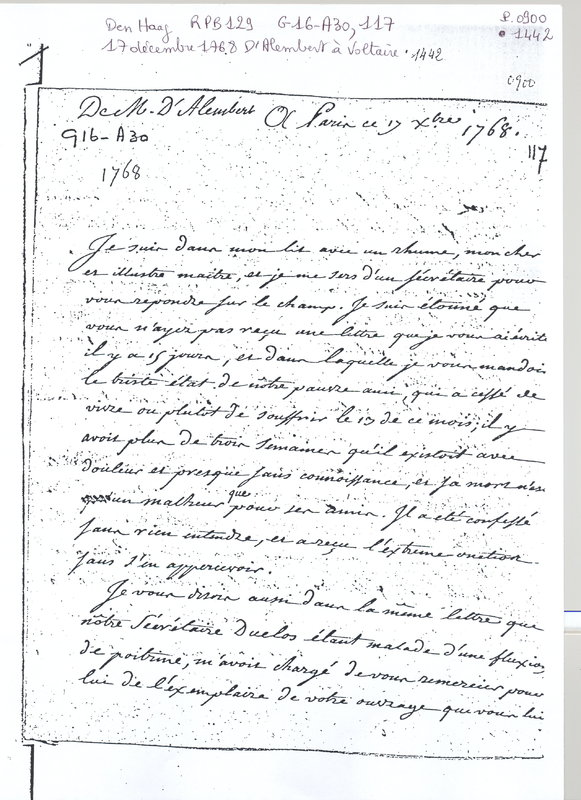 Den Haag RPB129 G-16-A30, 117
P. 0900
• 1442
17 décembre 1768 D'Alembert à Voltaire • 1442
0900
De M. D'Alembert
A Paris ce 17 Xbre 1768.
G16-A30
117
1768
Je suis dans mon lit avec un rhume, mon cher
et illustre maitre, et je me sers d'un Sécrétaire pour
vous repondre sur le champ. Je suis étonné que
vous n'ayez pas reçu une lettre que je vous ai écrite
il y a 15 jours, et dans laquelle je vous mandois
le triste état de nôtre pauvre ami, qui a cessé de
vivre ou plutôt de souffrir le 13 de ce mois; il y
avoit plus de trois Semaines qu'il existoit avec
douleur et presque sans connoissance, et sa mort n'est
un malheur que pour ses amis. Il a été confessé
sans rien entendre, et a reçu l'extreme onction
sans s'en appercevoir.
Je vous disois aussi dans la même lettre que
nôtre Sécrétaire Duclos étant malade d'une fluxion
de poitrine, m'avoit chargé de vous remercier pour
lui de l'exemplaire de votre ouvrage que vous lui